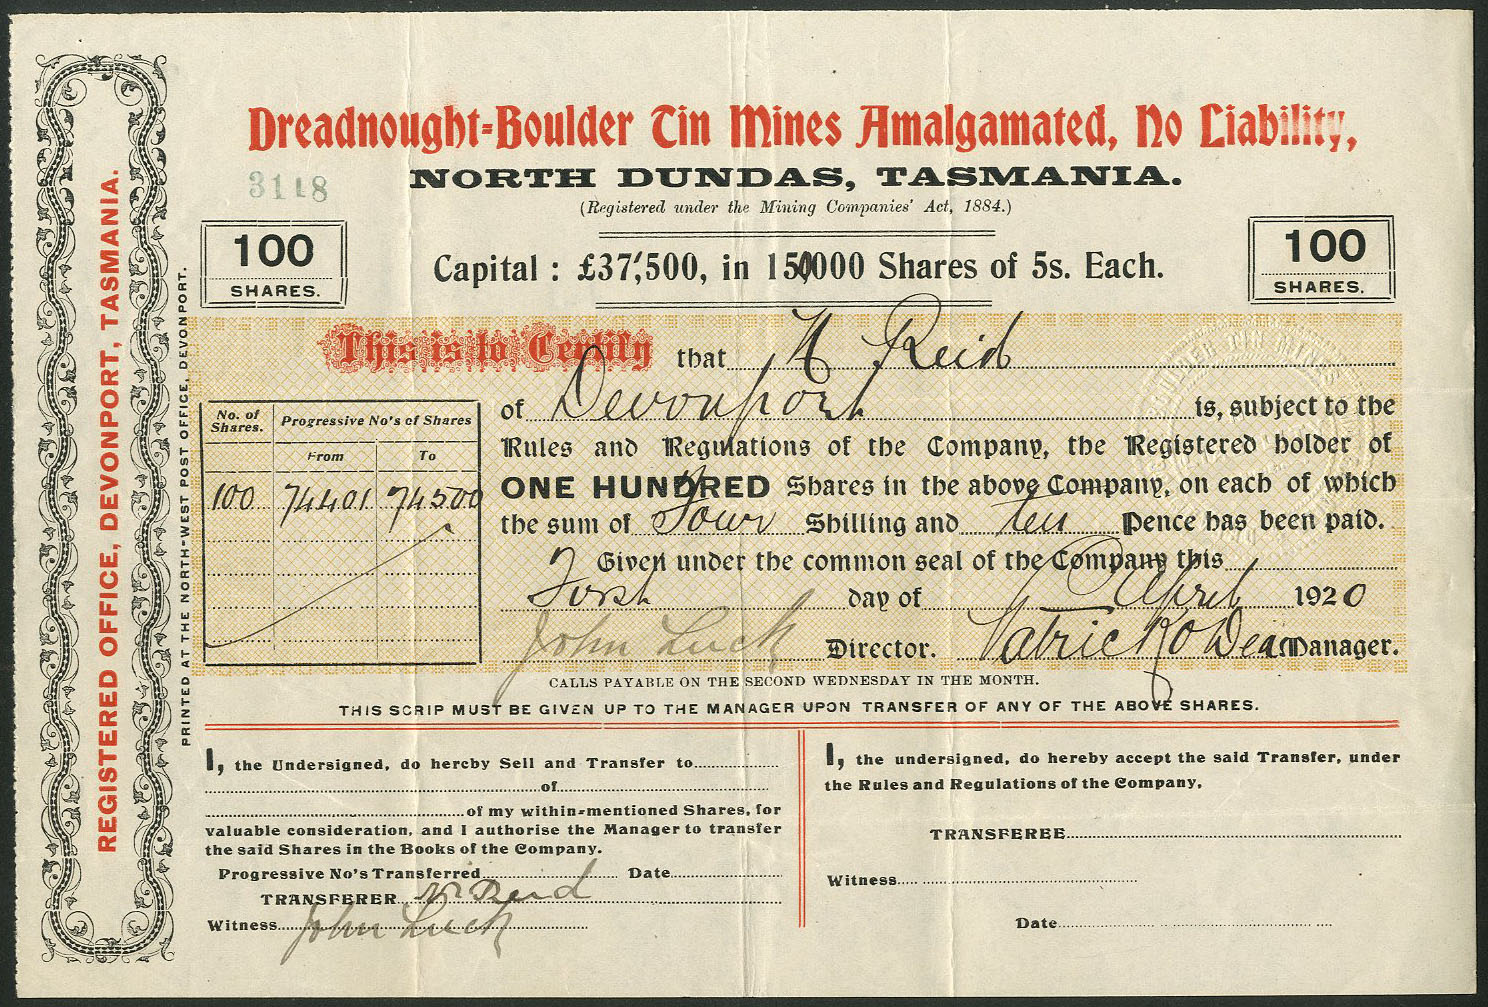 Dreadnought=Boulder Tin Mines Amalgamated, No Liability,
NORTH DUNDAS, TASMANIA.
3118
(Registered under the Mining Companies' Act, 1884.)
100
SHARES.
Capital : £37,500, in 150,000 Shares of 5s. Each.
100
SHARES.
REGISTERED OFFICE, DEVONPORT, TASMANIA.
PRINTED AT THE NORTH-WEST POST OFFICE, DEVONPORT.
This is to Certify that Reid
of Devonport is, subject to the
Rules and Regulations of the Company, the Registered holder of
ONE HUNDRED Shares in the above Company, on each of which
the sum of Four Shilling and ten Pence has been paid.
Given under the common seal of the Company this
First day of April 1920
John Luck Director. Patrick O'Dea Manager.
No. of Shares. Progressive No's of Shares
From To
100 74401 74500
CALLS PAYABLE ON THE SECOND WEDNESDAY IN THE MONTH.
THIS SCRIP MUST BE GIVEN UP TO THE MANAGER UPON TRANSFER OF ANY OF THE ABOVE SHARES.
I, the Undersigned, do hereby Sell and Transfer to
of
of my within=mentioned Shares, for
valuable consideration, and I authorise the Manager to transfer
the said Shares in the Books of the Company.
Progressive No's Transferred Date
TRANSFERER Reid
Witness John Luck
I, the undersigned, do hereby accept the said Transfer, under
the Rules and Regulations of the Company,
TRANSFEREE
Witness
Date